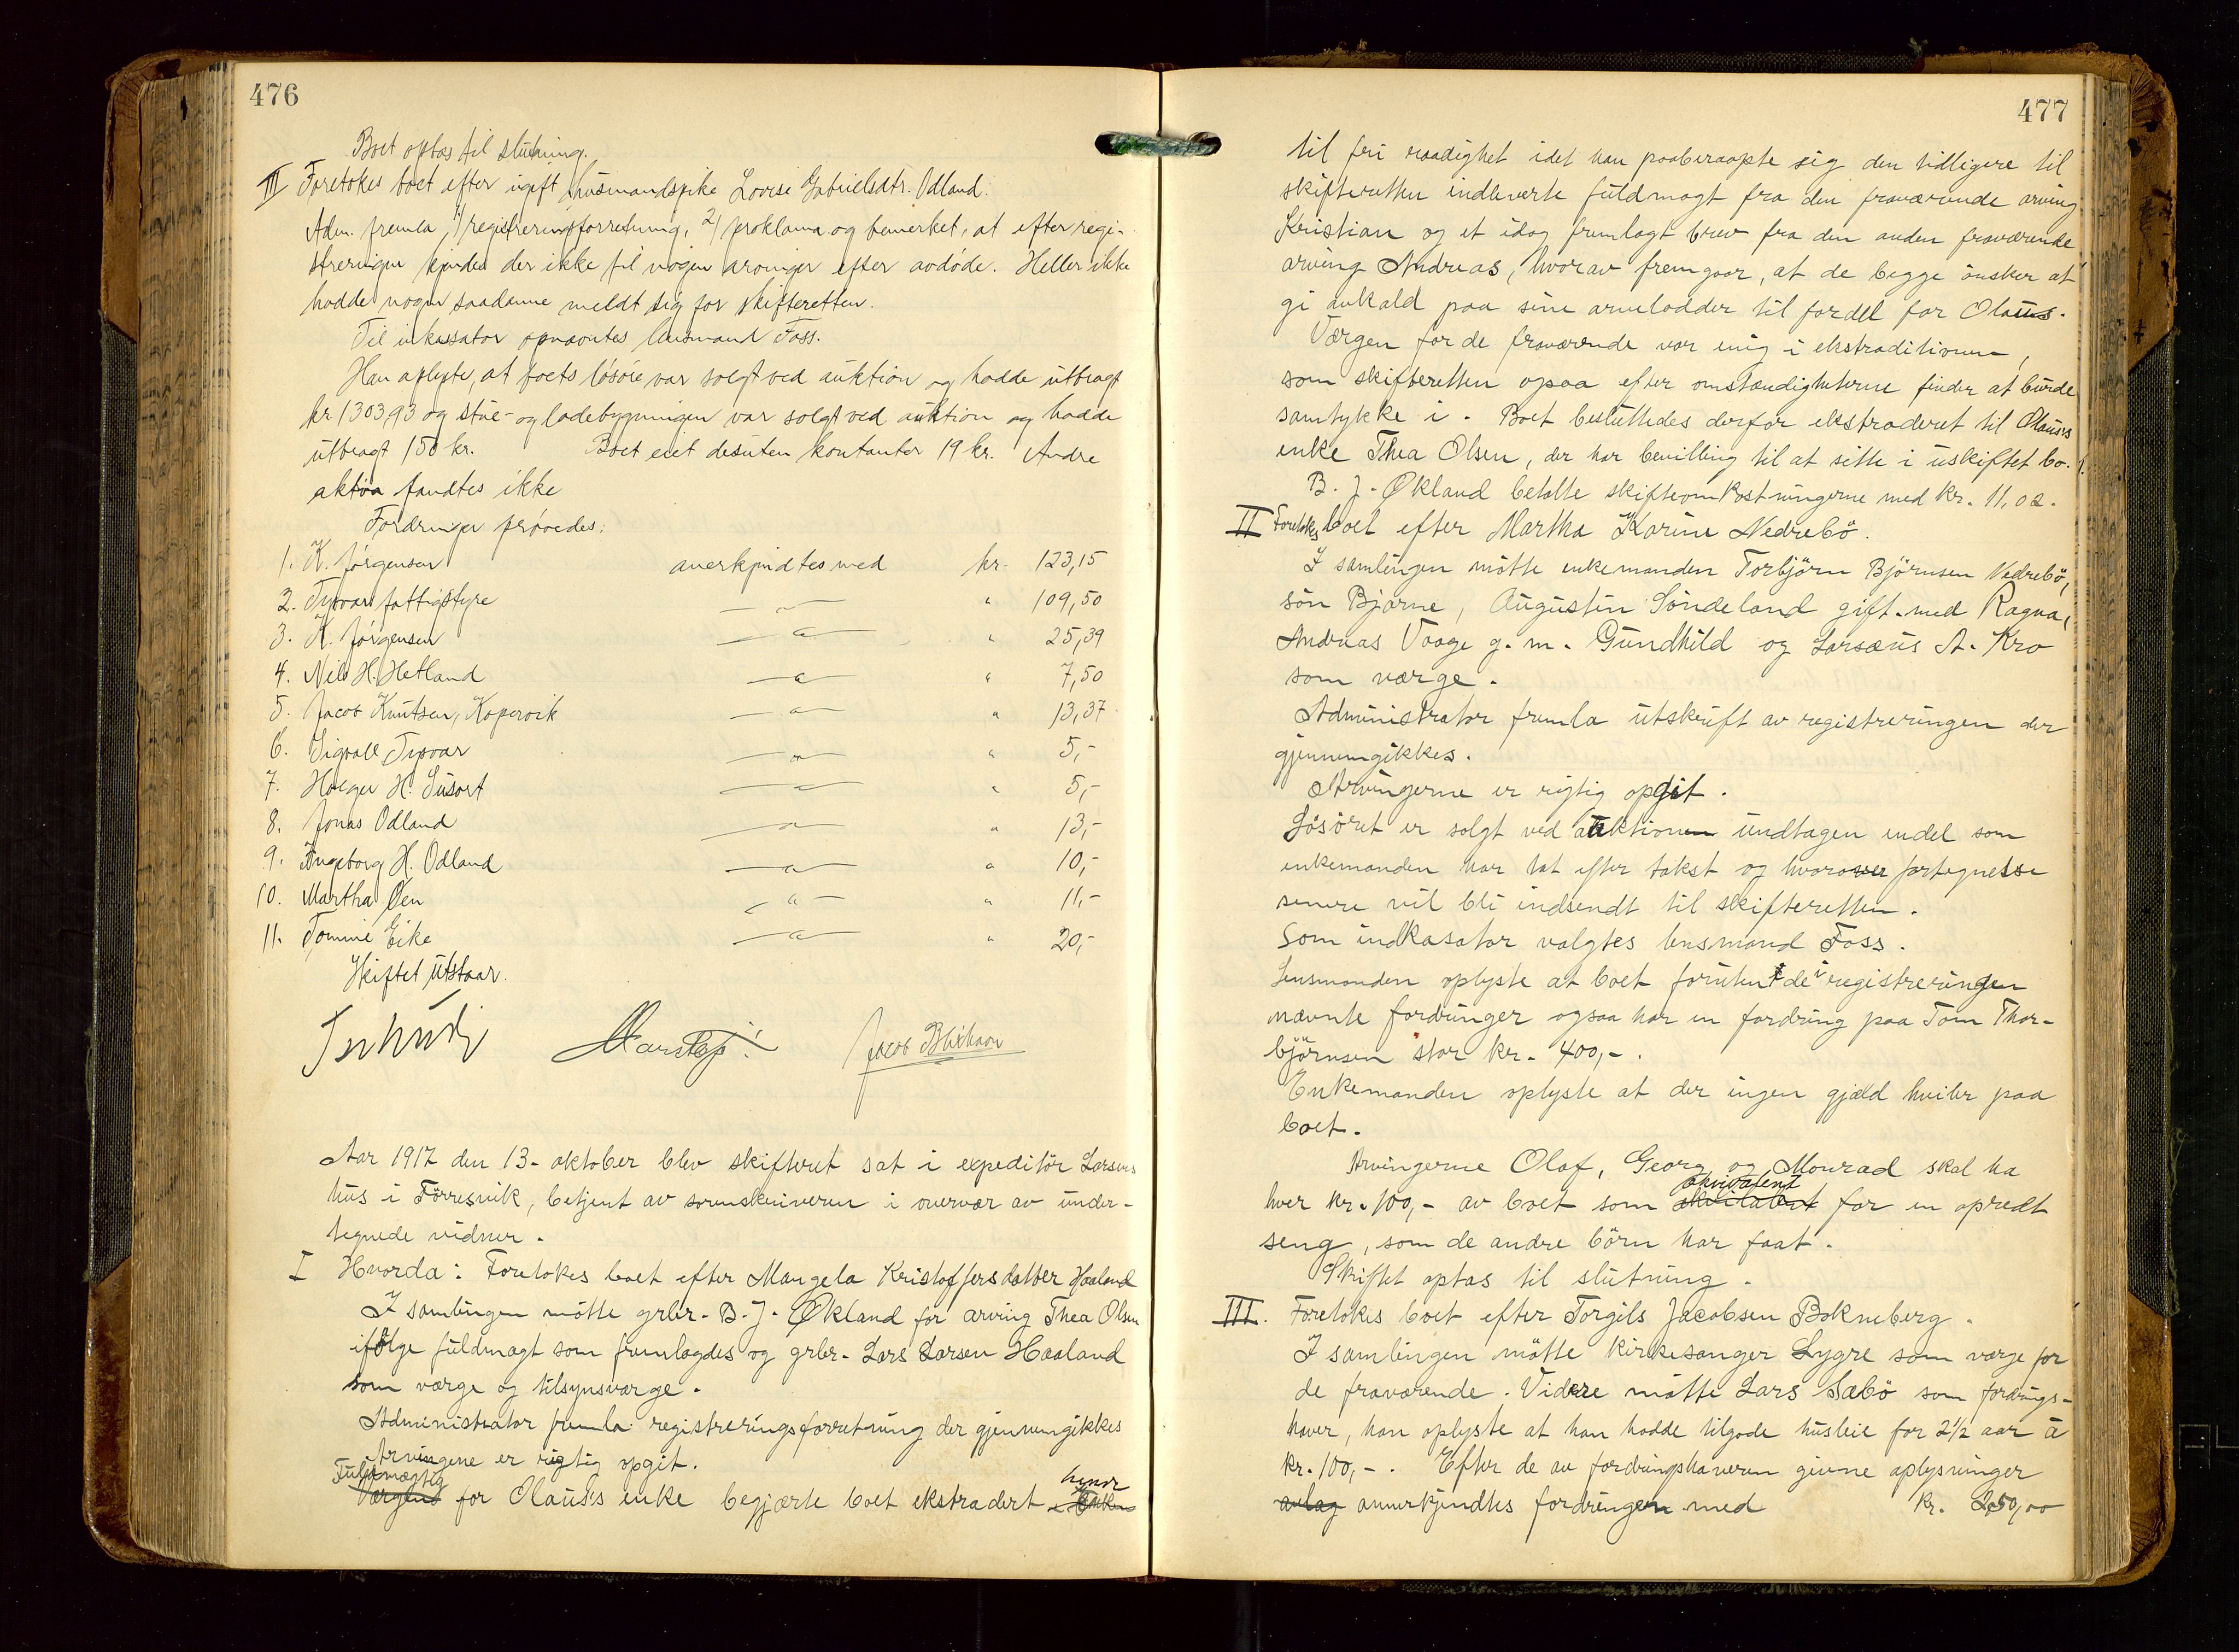 476
Boet optas til slutning.
III Foretokes boet efter ugift husmandspike Lovise Gabrielsdtr. Odland.
Adm. fremla 1/ registreringsforretning, 2/ proklama og bemerket, at efter regi-
streringen kjendes der ikke til nogen arvinger efter avdöde. Heller ikke
hadde nogen saadanne meldt sig for skifteretten.
Til inkassator opnævntes lensmand Foss.
Han oplyste, at boets lösöre var solgt ved auktion og hadde utbragt
kr 1303,93 og stue- og ladebygningen var solgt ved auktion og hadde
utbragt 150 kr. Boet eiet desuten kontanter 19 kr. Andre
aktiva fandtes ikke
Fordringer prövedes:
1. K. Jörgensen anerkjendtes med kr. 123,15
2. Tysvær fattigstyre —"— " 109,50
3. K. Jörgensen —"— " 25,39
4. Nils H. Hetland —"— " 7,50
5. Jacob Knutsen, Kopervik —"— " 13,37
6. Sigvall Tysvær —"— " 5,-
7. Holger H. Susort —"— " 5,-
8. Jonas Odland —"— " 13,-
9. Ingeborg H. Odland —"— " 10,-
10. Martha Öen —"— " 11,-
11. Tomine Eike —"— " 20,-
Skiftet utstaar.
Jacob Blikhavn
Aar 1917 den 13. oktober blev skifteret sat i expeditör Larsens
hus i Förresvik, betjent av sorenskriveren i overvær av under-
tegnede vidner.
I Hvorda: Foretokes boet efter Mangela Kristoffersdatter Haaland
I samlingen mötte grbr. B. J. Økland for arving Thea Olsen
ifölge fuldmagt som fremlagdes og grbr. Lars Larsen Haaland
som værge og tilsynsværge.
Administrator fremla registreringsforretning der gjennemgikkes
Arvingene er rigtig opgit.
Fuldmægtig henor
Værgene for Olaus's enke begjærte boet ekstradert Enken
477
til fri raadighet idet han paaberaapte sig den tidligere til
skifteretten indleverte fuldmagt fra den fraværende arving
Kristian og et idag fremlagt brev fra den anden fraværende
arving Andreas, hvorav fremgaar, at de begge önsker at
gi avkald paa sine arvelodder til fordel for Olaus.
Værgen for de fraværende var enig i ekstraditionen,
som skifteretten ogsaa efter omstændigheterne finder at burde
samtykke i. Boet besluttedes derfor ekstraderet til Olaus's
enke Thea Olsen, der har bevilling til at sitte i uskiftet bo.
B. J. Økland betalte skifteomkostningerne med kr. 11,02.
II Foretokes boet efter Martha Karine Nedrebö.
I samlingen mötte enkemanden Torbjörn Björnsen Nedrebö,
sön Bjarne, Augustin Söndeland gift med Ragna,
Andreas Vaage g. m. Gundhild og Larsæus A. Kro
som værge.
Administrator fremla utskrift av registreringen der
gjennemgikkes.
Arvingerne er rigtig opgit.
Lösöret er solgt ved auktionen undtagen endel som
enkemanden har tat efter takst og hvorover fortegnelse
senere vil bli indsendt til skifteretten.
Som indkasator valgtes lensmand Foss.
Lensmanden oplyste at boet foruten de i registreringen
nævnte fordringer ogsaa har en fordring paa Tom Thor-
björnsen stor kr. 400,-.
Enkemanden oplyste at der ingen gjæld hviler paa
boet.
Arvingerne Olaf, Georg og Monrad skal ha
ekvivalent
hver kr. 100,- av boet som ekvilatent for en opredt
seng, som de andre börn har faat.
Skiftet optas til slutning.
III. Foretokes boet efter Torgils Jacobsen Bokneberg.
I samlingen mötte kirkesanger Lygre som værge for
de fraværende. Videre mötte Lars Sæbö som fordrings-
haver, han oplyste at han hadde tilgode husleie for 2½ aar á
kr. 100,-. Efter de av fordringshaveren givne oplysninger
avlag annerkjendtes fordringen med kr. 250,00